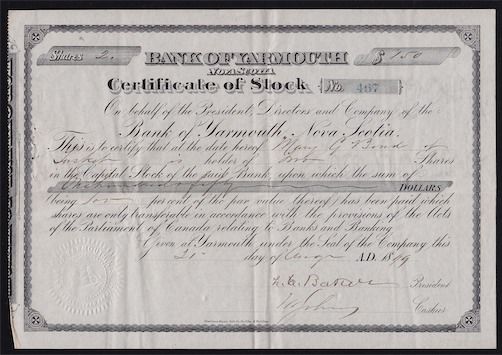 Shares 2. BANK OF YARMOUTH $ 150
NOVA SCOTIA
Certificate of Stock No. 467
On behalf of the President, Directors and Company of the
Bank of Yarmouth, Nova Scotia.
This is to certify that at the date hereof Mary G Bond of
Tusket is holder of Two Shares
in the Capital Stock of the said Bank, upon which the sum of
One hundred & fifty DOLLARS
being per cent of the par value thereof has been paid which
shares are only transferable in accordance with the provisions of the Acts
of the Parliament of Canada relating to Banks and Banking.
Given at Yarmouth under the Seal of the Company this
21 day of Augt A.D. 18
L. E. Baker President
Cashier